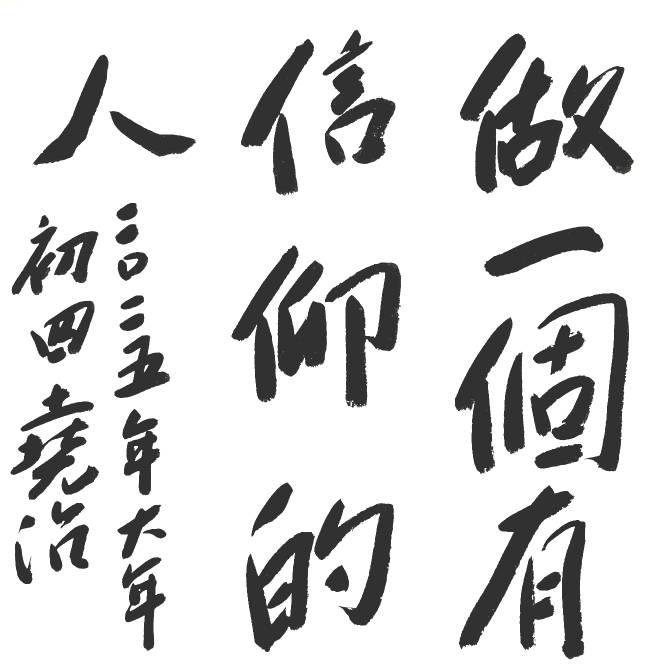 做一個有
信仰的
人
二〇二五年大年
初四堯治